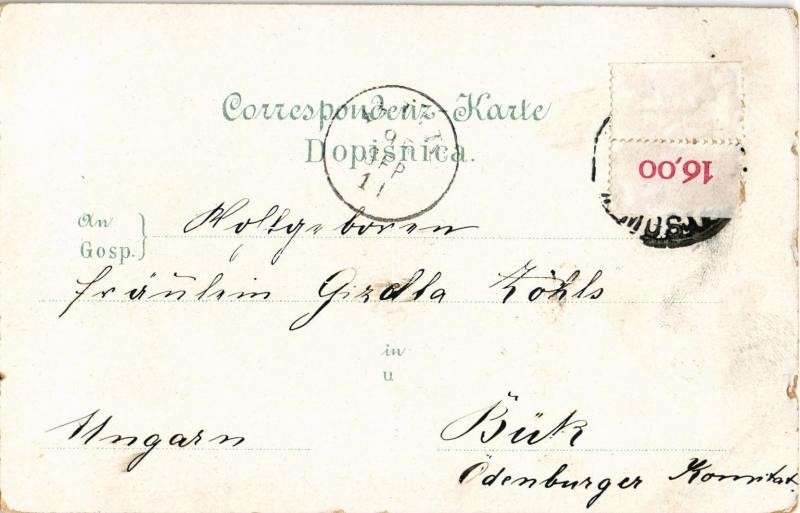 Correspondenz-Karte
Dopisnica.
16,00
SEP
11
An
Gosp.
Wollgeboren
Fräulein Gizella Köhls
in
u
Ungarn
Bük
Ödenburger Komitat.